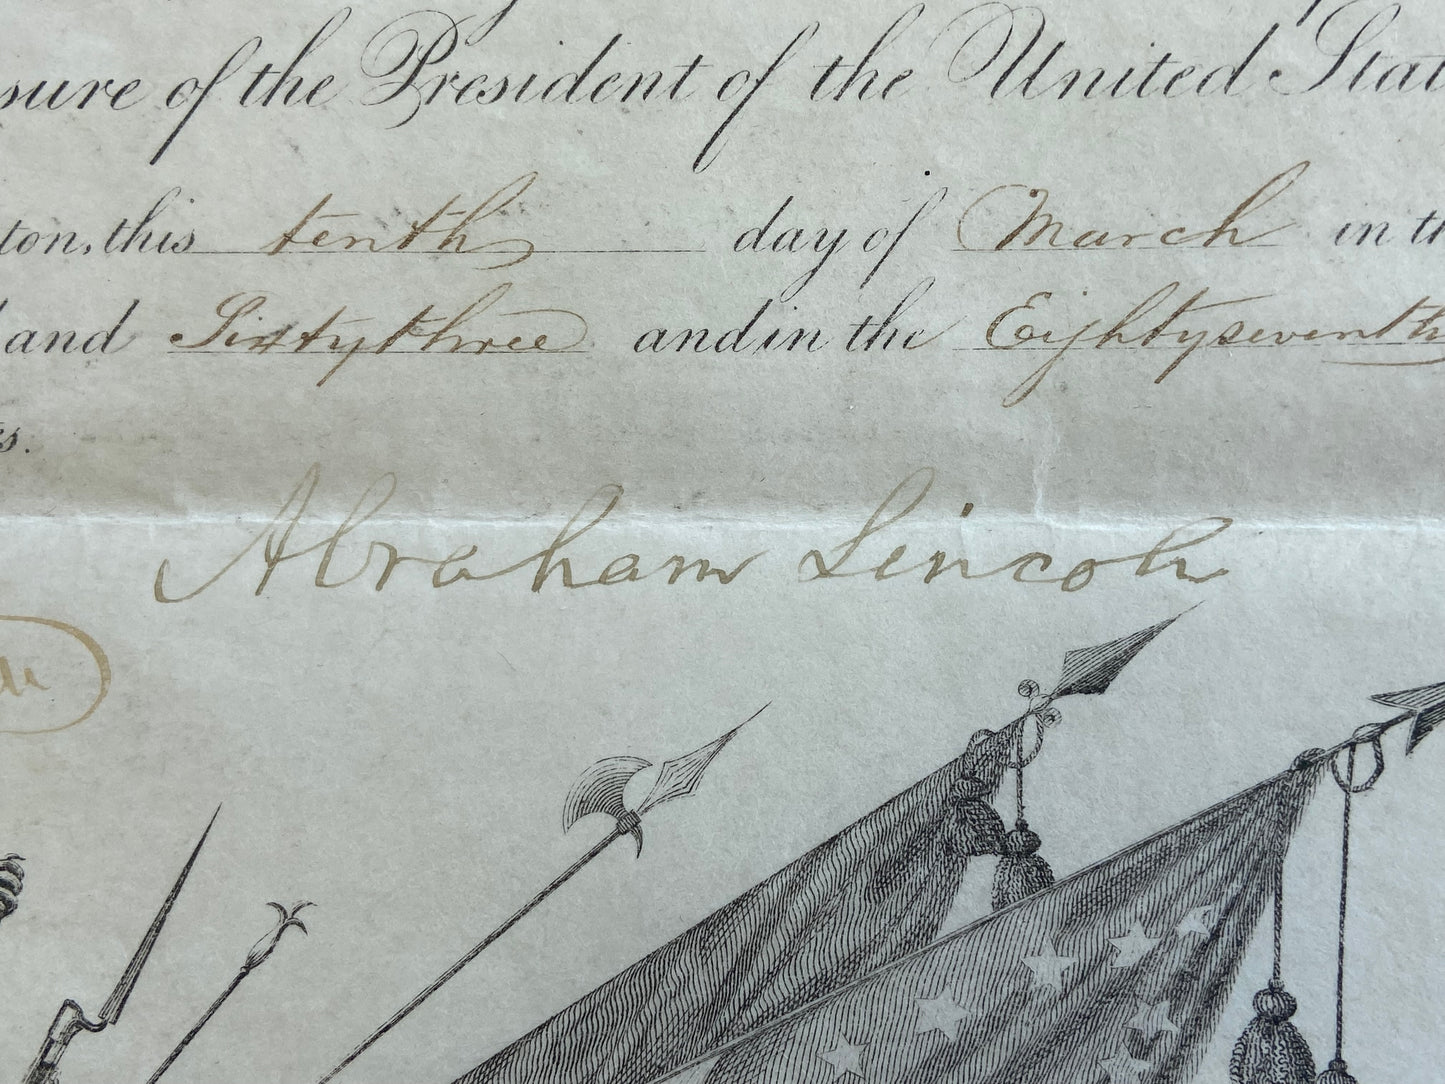 sure of the President of the United Stat
ton, this tenth day of March in th
and Sixtythree and in the Eightyseventh
s.
Abraham Lincoln